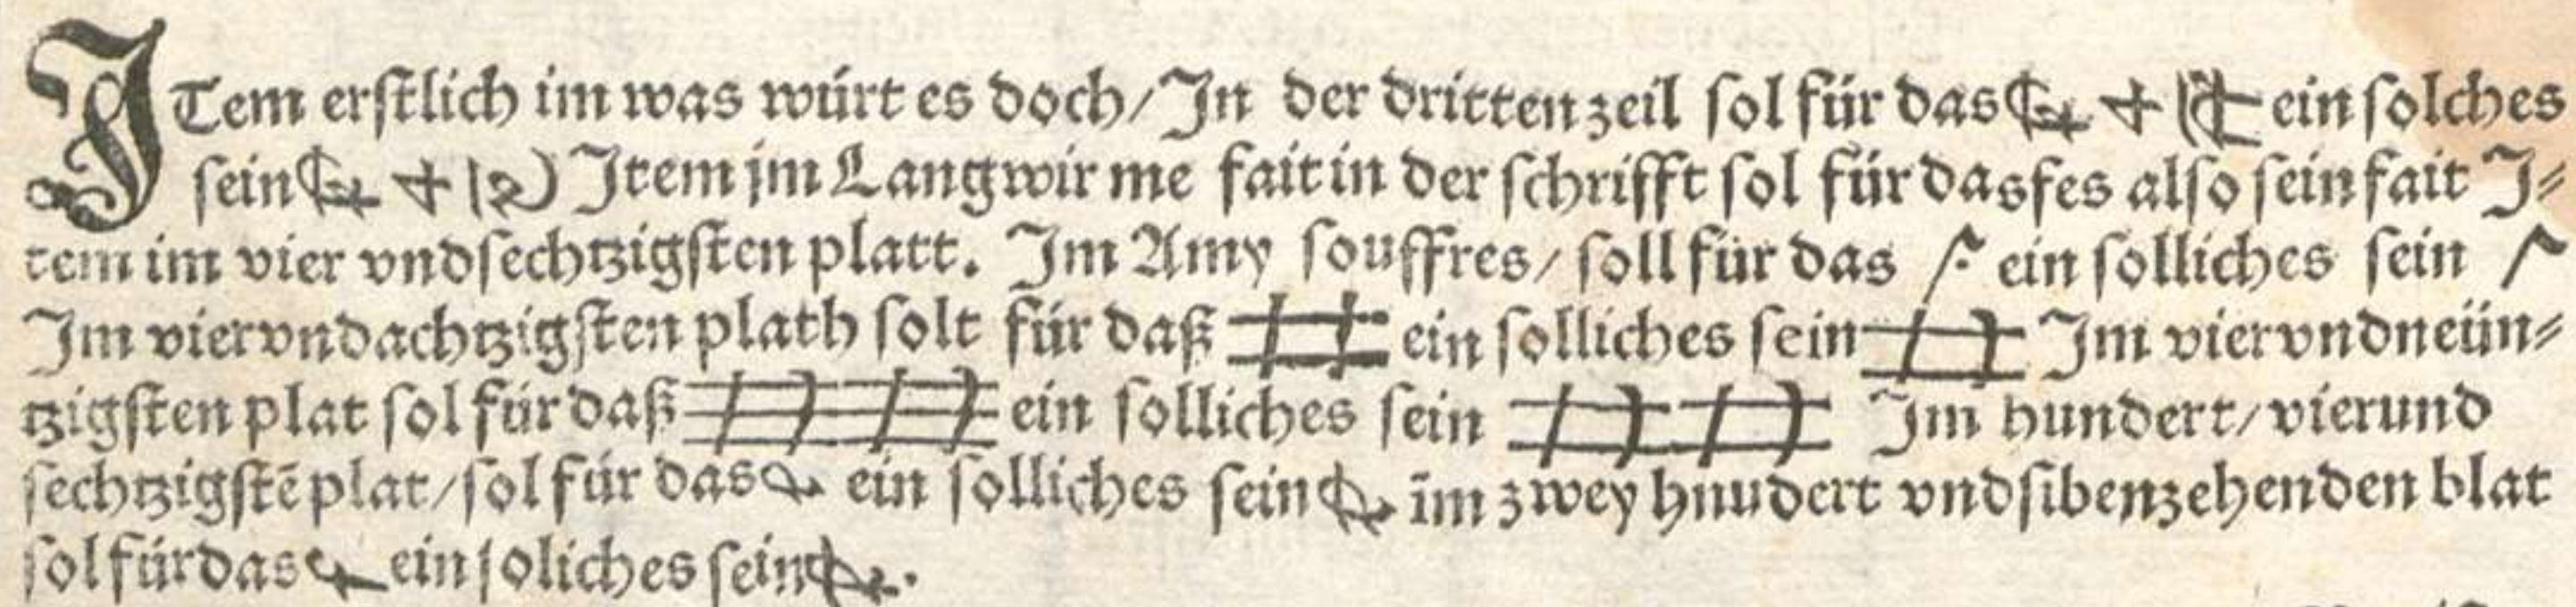 ITem erſtlich im was würt es doch/ In der dritten zeil ſol für das ein ſolches
ſein Item jm Lang wir me fait in der ſchrifft ſol für das fes alſo ſein fait J⸗
tem im vier vndſechtzigſten platt. Im Amy ſouffres/ ſoll für das ein ſolliches ſein
Im viervndachtzigſten plath ſolt für daß ein ſolliches ſein Im viervndneün⸗
tzigſten plat ſol für daß ein ſolliches ſein Im hundert/ vierund
ſechtzigſtē plat/ ſol für das ein ſolliches ſein im zwey hnudert vndſibenzehenden blat
ſol für das ein ſoliches ſein .